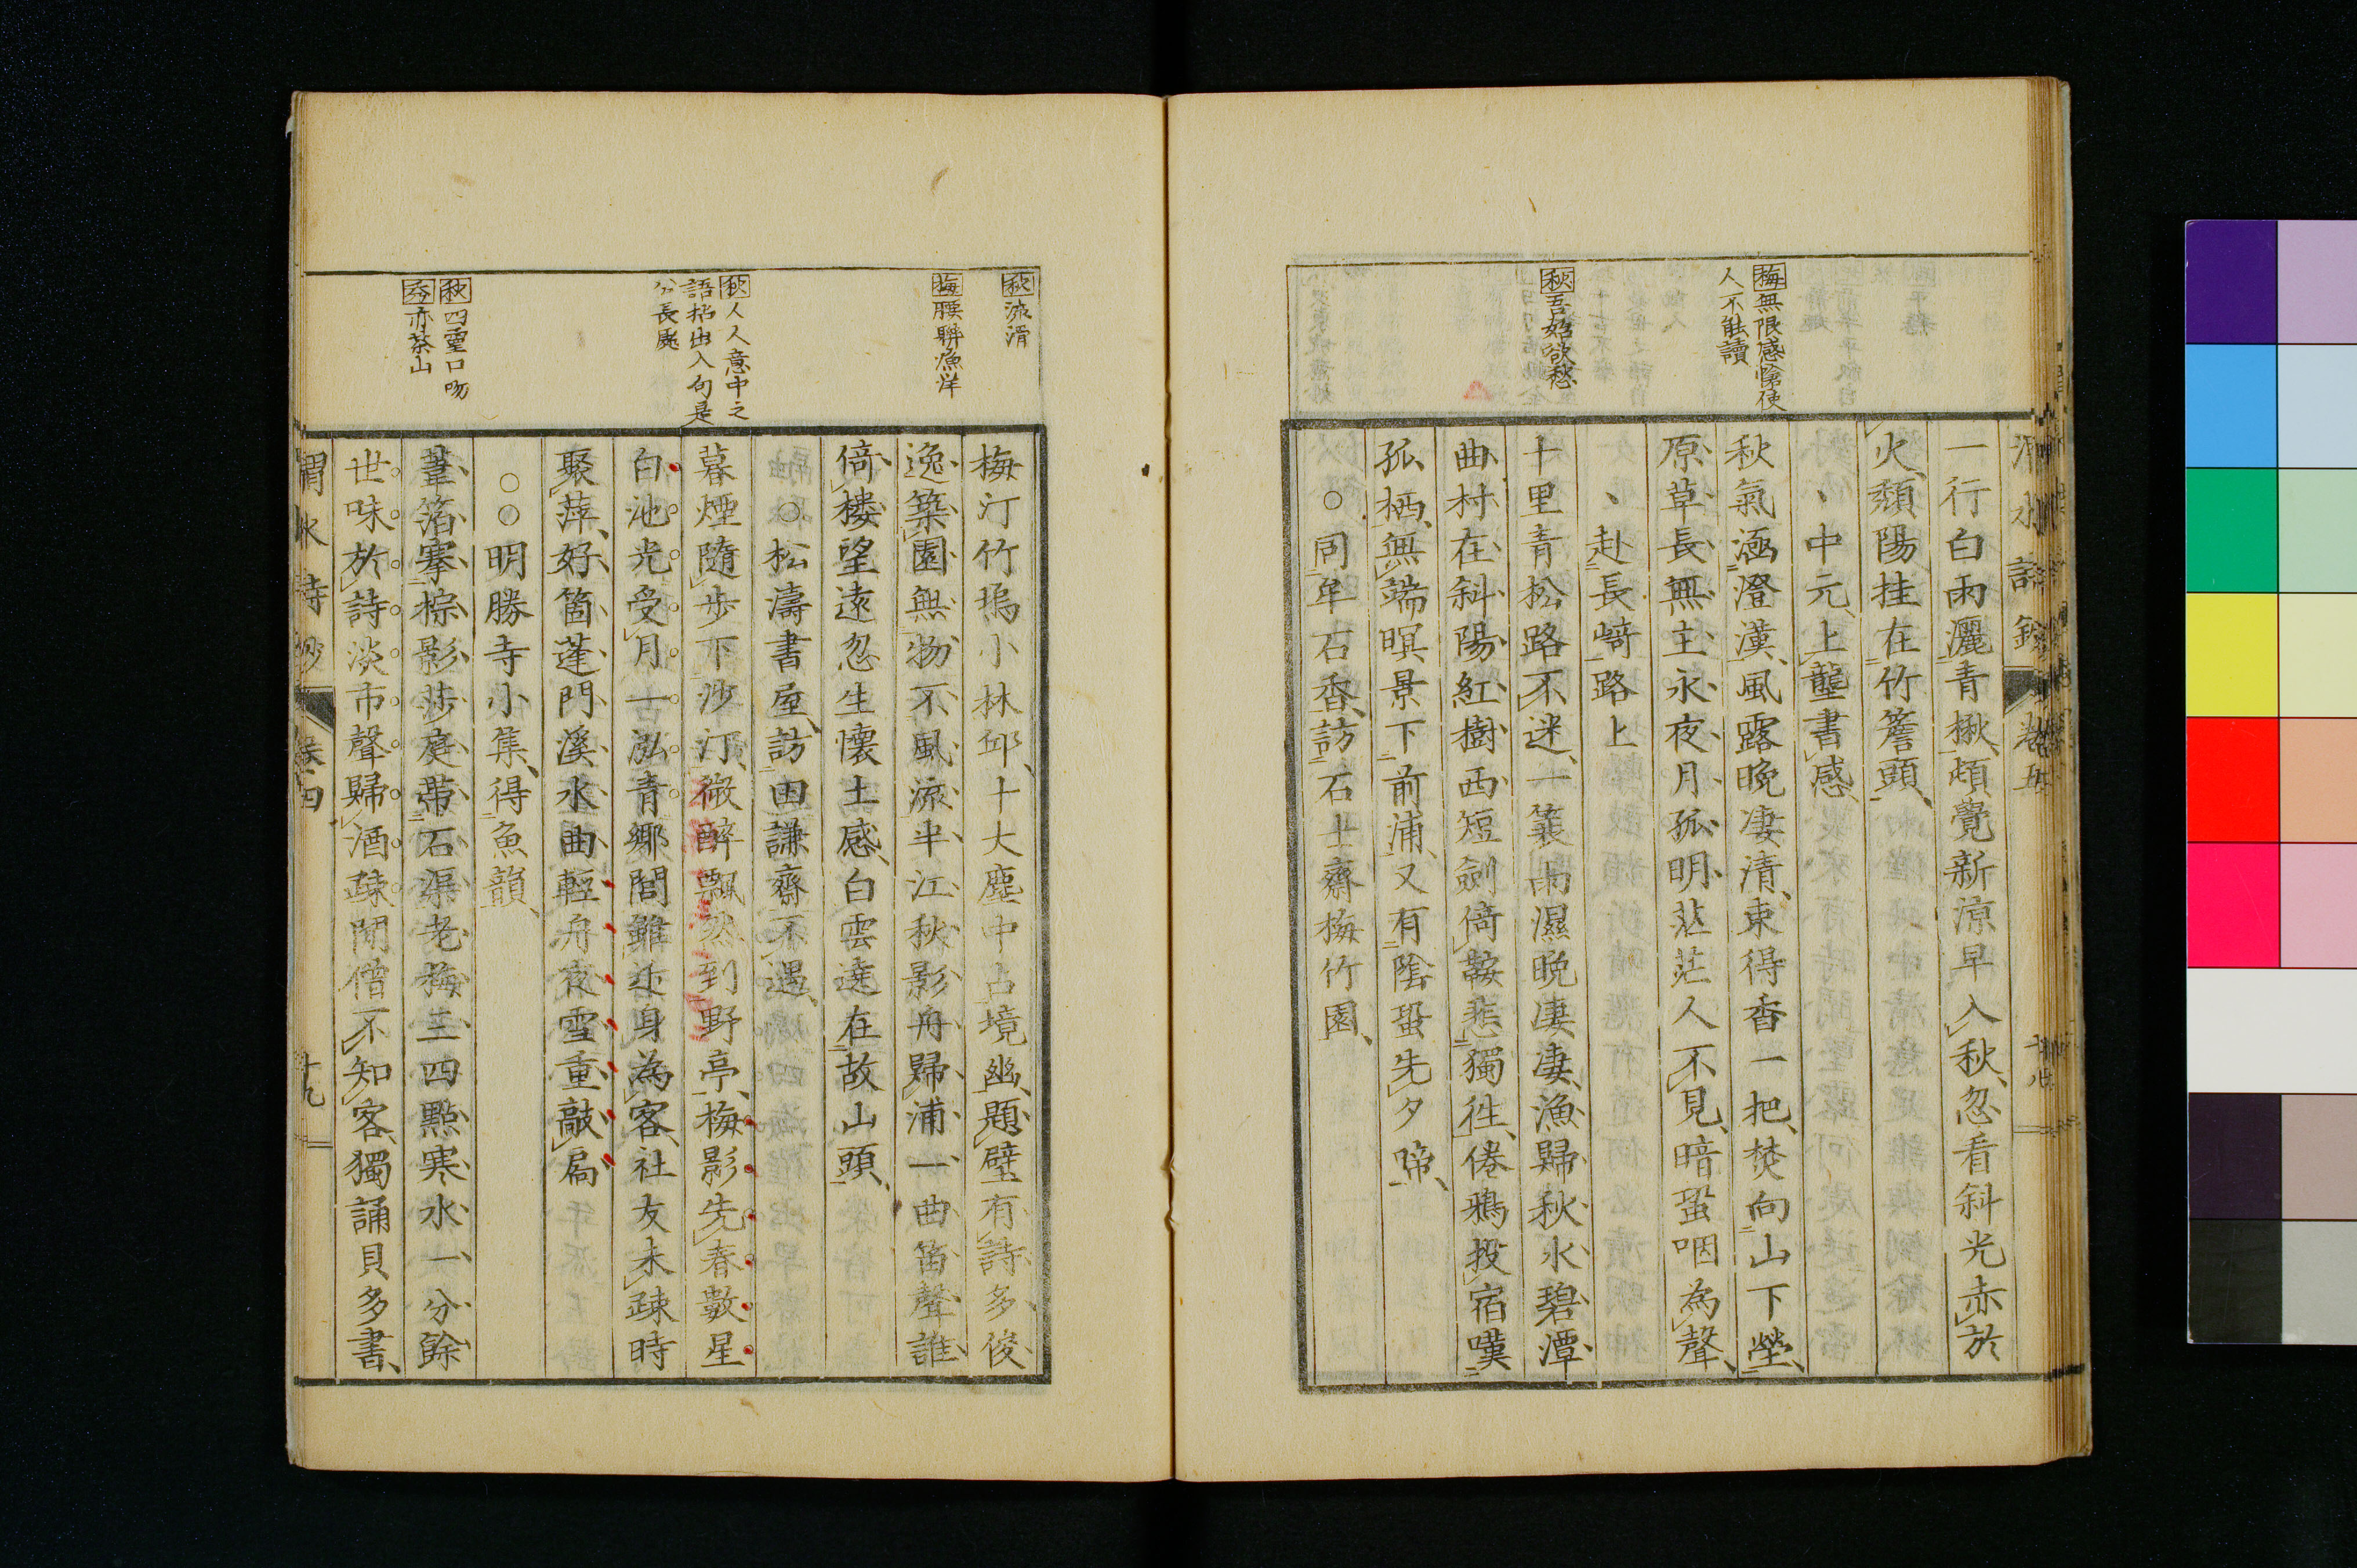 一行白雨灑青楸頓覺新涼早入秋忽看斜光赤於
火頽陽挂在竹簷頭
中元上壟書感
秋氣涵澄漢風露晩凄清束得香一把焚向山下塋
原草長無主永夜月孤明茫茫人不見暗蛩咽為聲
赴長崎路上
十里青松路不迷一簑雨濕晩凄凄漁歸秋水碧潭
曲村在斜陽紅樹西短劍倚鞍悲獨往倦鴉投宿嘆
孤栖無端暝景下前浦又有陰蛩先夕啼
○同牟石香訪石士齋梅竹園
梅無限感愴使
人不能讀
秋吾始欲愁
梅汀竹塢小林邱十大塵中占境幽題壁有詩多俊
逸築園無物不風流半江秋影舟歸浦一曲笛聲誰
倚楼望遠忽生懷土感白雲遶在故山頭
○松濤書屋訪田謙齋不遇
暮煙隨步下沙汀微醉飄然到野亭梅影先春數星
白池光受月一泓青鄉閭雖近身為客社友未疎時
聚萍好箇蓬門溪水曲輕舟夜雪重敲扃
○○明勝寺小集得魚韻
葦箔搴棕影莎庭帶石渠老梅三四點寒水一分餘
世味於詩淡市聲歸酒疎閒僧不知客獨誦貝多書
秋流滑
梅腰聯漁洋
秋人人意中之
語拈出入句是
公長處
秋四靈口吻
亦茶山
卷四
十九